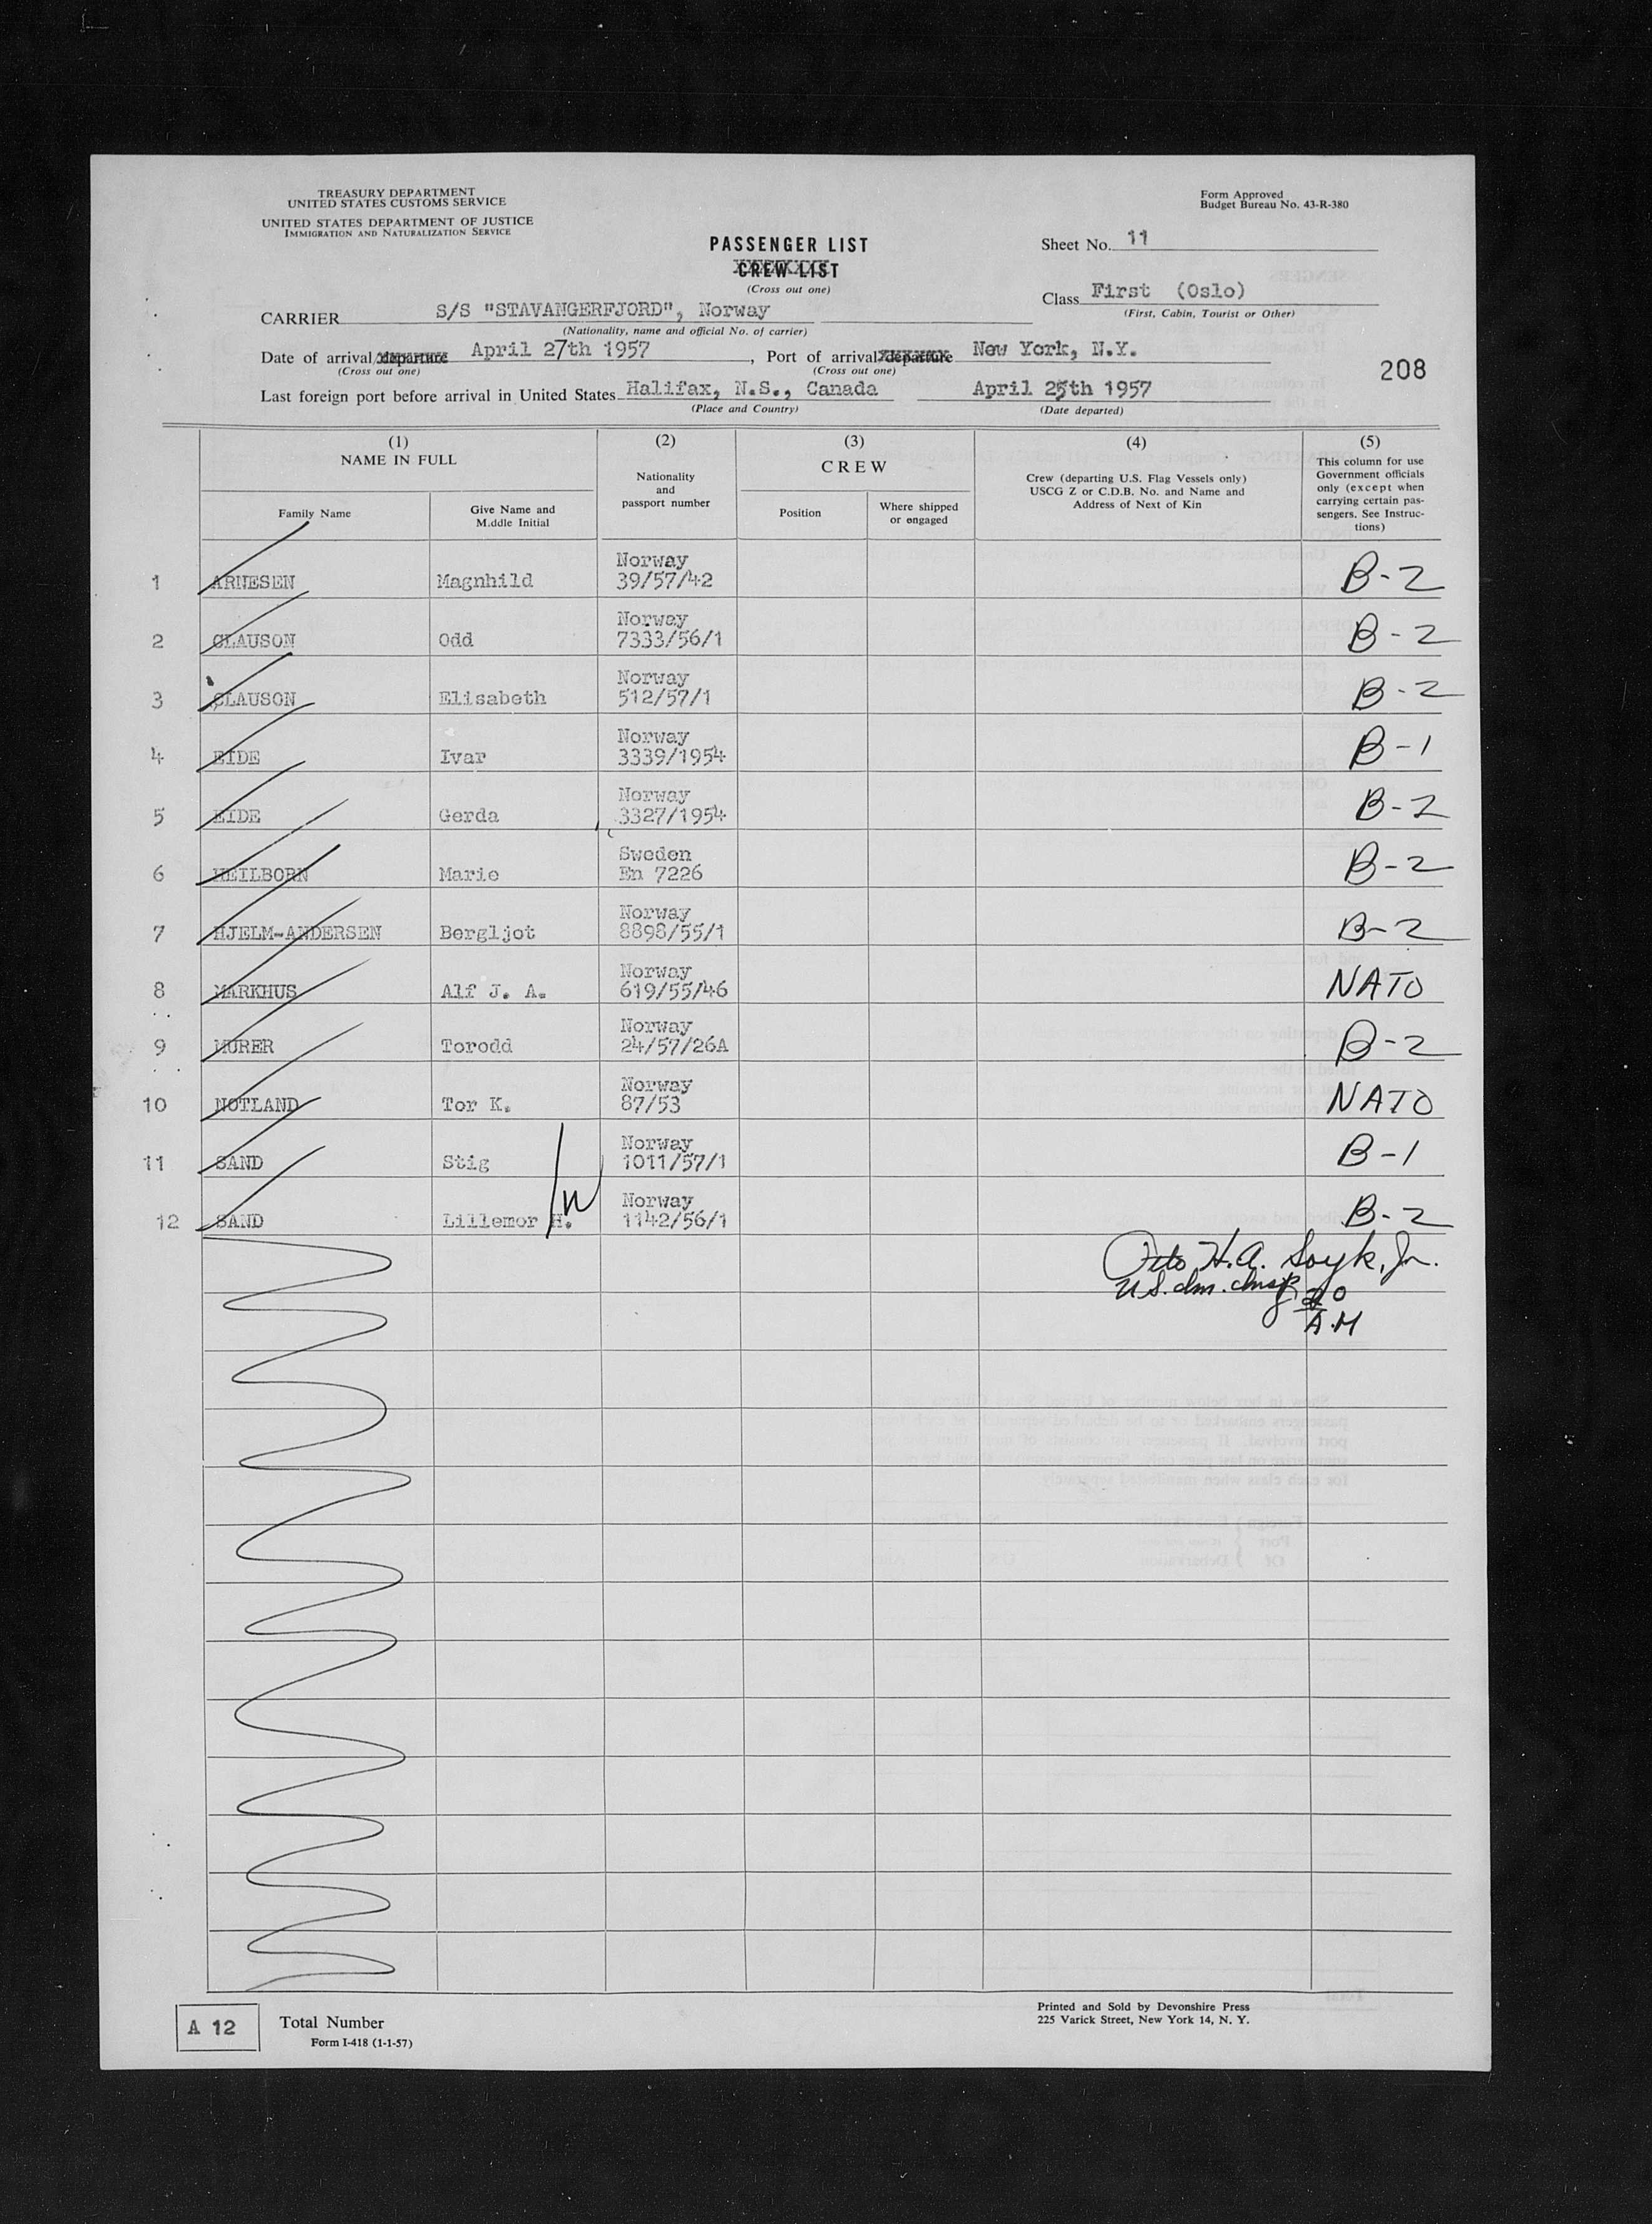 TREASURY DEPARTMENT
UNITED STATES CUSTOMS SERVICE
UNITED STATES DEPARTMENT OF JUSTICE
IMMIGRATION AND NATURALIZATION SERVICE
Form Approved
Budget Bureau No. 43-R-380
PASSENGER LIST
CREW LIST
(Cross out one)
Sheet No. 11
Class First (Oslo)
(First, Cabin, Tourist or Other)
CARRIER S/S "STAVANGERFJORD", Norway
(Nationality, name and official No. of carrier)
Date of arrival/departure April 27th 1957, Port of arrival/departure New York, N.Y.
(Cross out one) (Cross out one)
208
Last foreign port before arrival in United States Halifax, N.S., Canada April 25th 1957
(Place and Country) (Date departed)
(1) (2) (3) (4) (5)
NAME IN FULL
Family Name
Give Name and
M.ddle Initial
Nationality
and
passport number
CREW
Position
Where shipped
or engaged
Crew (departing U.S. Flag Vessels only)
USCG Z or C.D.B. No. and Name and
Address of Next of Kin
This column for use
Government officials
only (except when
carrying certain pas-
sengers. See Instruc-
tions)
Norway
1 ARNESEN Magnhild 39/57/42 B-2
Norway
2 CLAUSON Odd 7333/56/1 B-2
Norway
3 CLAUSON Elisabeth 512/57/1 B-2
Norway
4 EIDE Ivar 3339/1954 B-1
Norway
5 EIDE Gerda 3327/1954 B-2
Sweden
6 HEILBORN Marie En 7226 B-2
Norway
7 HJELM-ANDERSEN Bergljot 8898/55/1 B-2
Norway
8 MARKHUS Alf J. A. 619/55/46 NATO
Norway
9 MURER Torodd 24/57/26A B-2
Norway
10 NOTLAND Tor K. 87/53 NATO
Norway
11 SAND Stig 1011/57/1 B-1
Norway
12 SAND Lillemor H. 1142/56/1 B-2
Otto H.A. Soyk, Jr.
U.S. Imm. Insp.
A.M
A 12
Total Number
Form I-418 (1-1-57)
Printed and Sold by Devonshire Press
225 Varick Street, New York 14, N. Y.